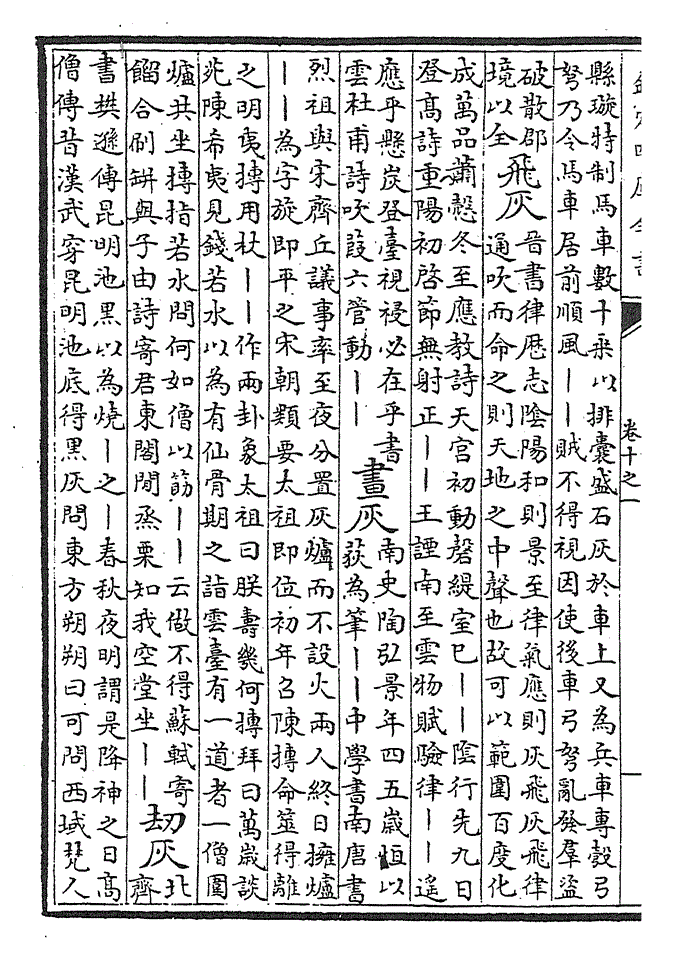 欽定四庫全書
卷十之一
縣璇特制馬車數十乘以排囊盛石灰於車上又為兵車專彀弓
弩乃令馬車居前順風丨丨賊不得視因使後車弓弩亂發羣盜
破散郡
境以全
飛灰
晉書律歷志陰陽和則景至律氣應則灰飛灰飛律
通吹而命之則天地之中聲也故可以範圍百度化
成萬品蕭愨冬至應教詩天官初動磬緹室巳丨丨陰行先九日
登高詩重陽初啓節無射正丨丨王諲南至雲物賦驗律丨丨遙
應乎懸炭登臺視祲必在乎書
雲杜甫詩吹葭六管動丨丨
畫灰
南史陶弘景年四五歲恒以
荻為筆丨丨中學書南唐書
烈祖與宋齊丘議事率至夜分置灰爐而不設火兩人終日擁爐
丨丨為字旋即平之宋朝類要太祖即位初年召陳摶命筮得離
之明夷摶用杖丨丨作兩卦象太祖曰朕壽幾何摶拜曰萬歲談
苑陳希夷見錢若水以為有仙骨期之詣雲臺有一道者一僧圍
爐共坐摶指若水問何如僧以筯丨丨云做不得蘇軾寄
餾合刷缾與子由詩寄君東閣閒烝栗知我空堂坐丨丨
劫灰
北
齊
書樊遜傳昆明池黑以為燒丨之丨春秋夜明謂是降神之日高
僧傳昔漢武穿昆明池底得黑灰問東方朔朔曰可問西域梵人